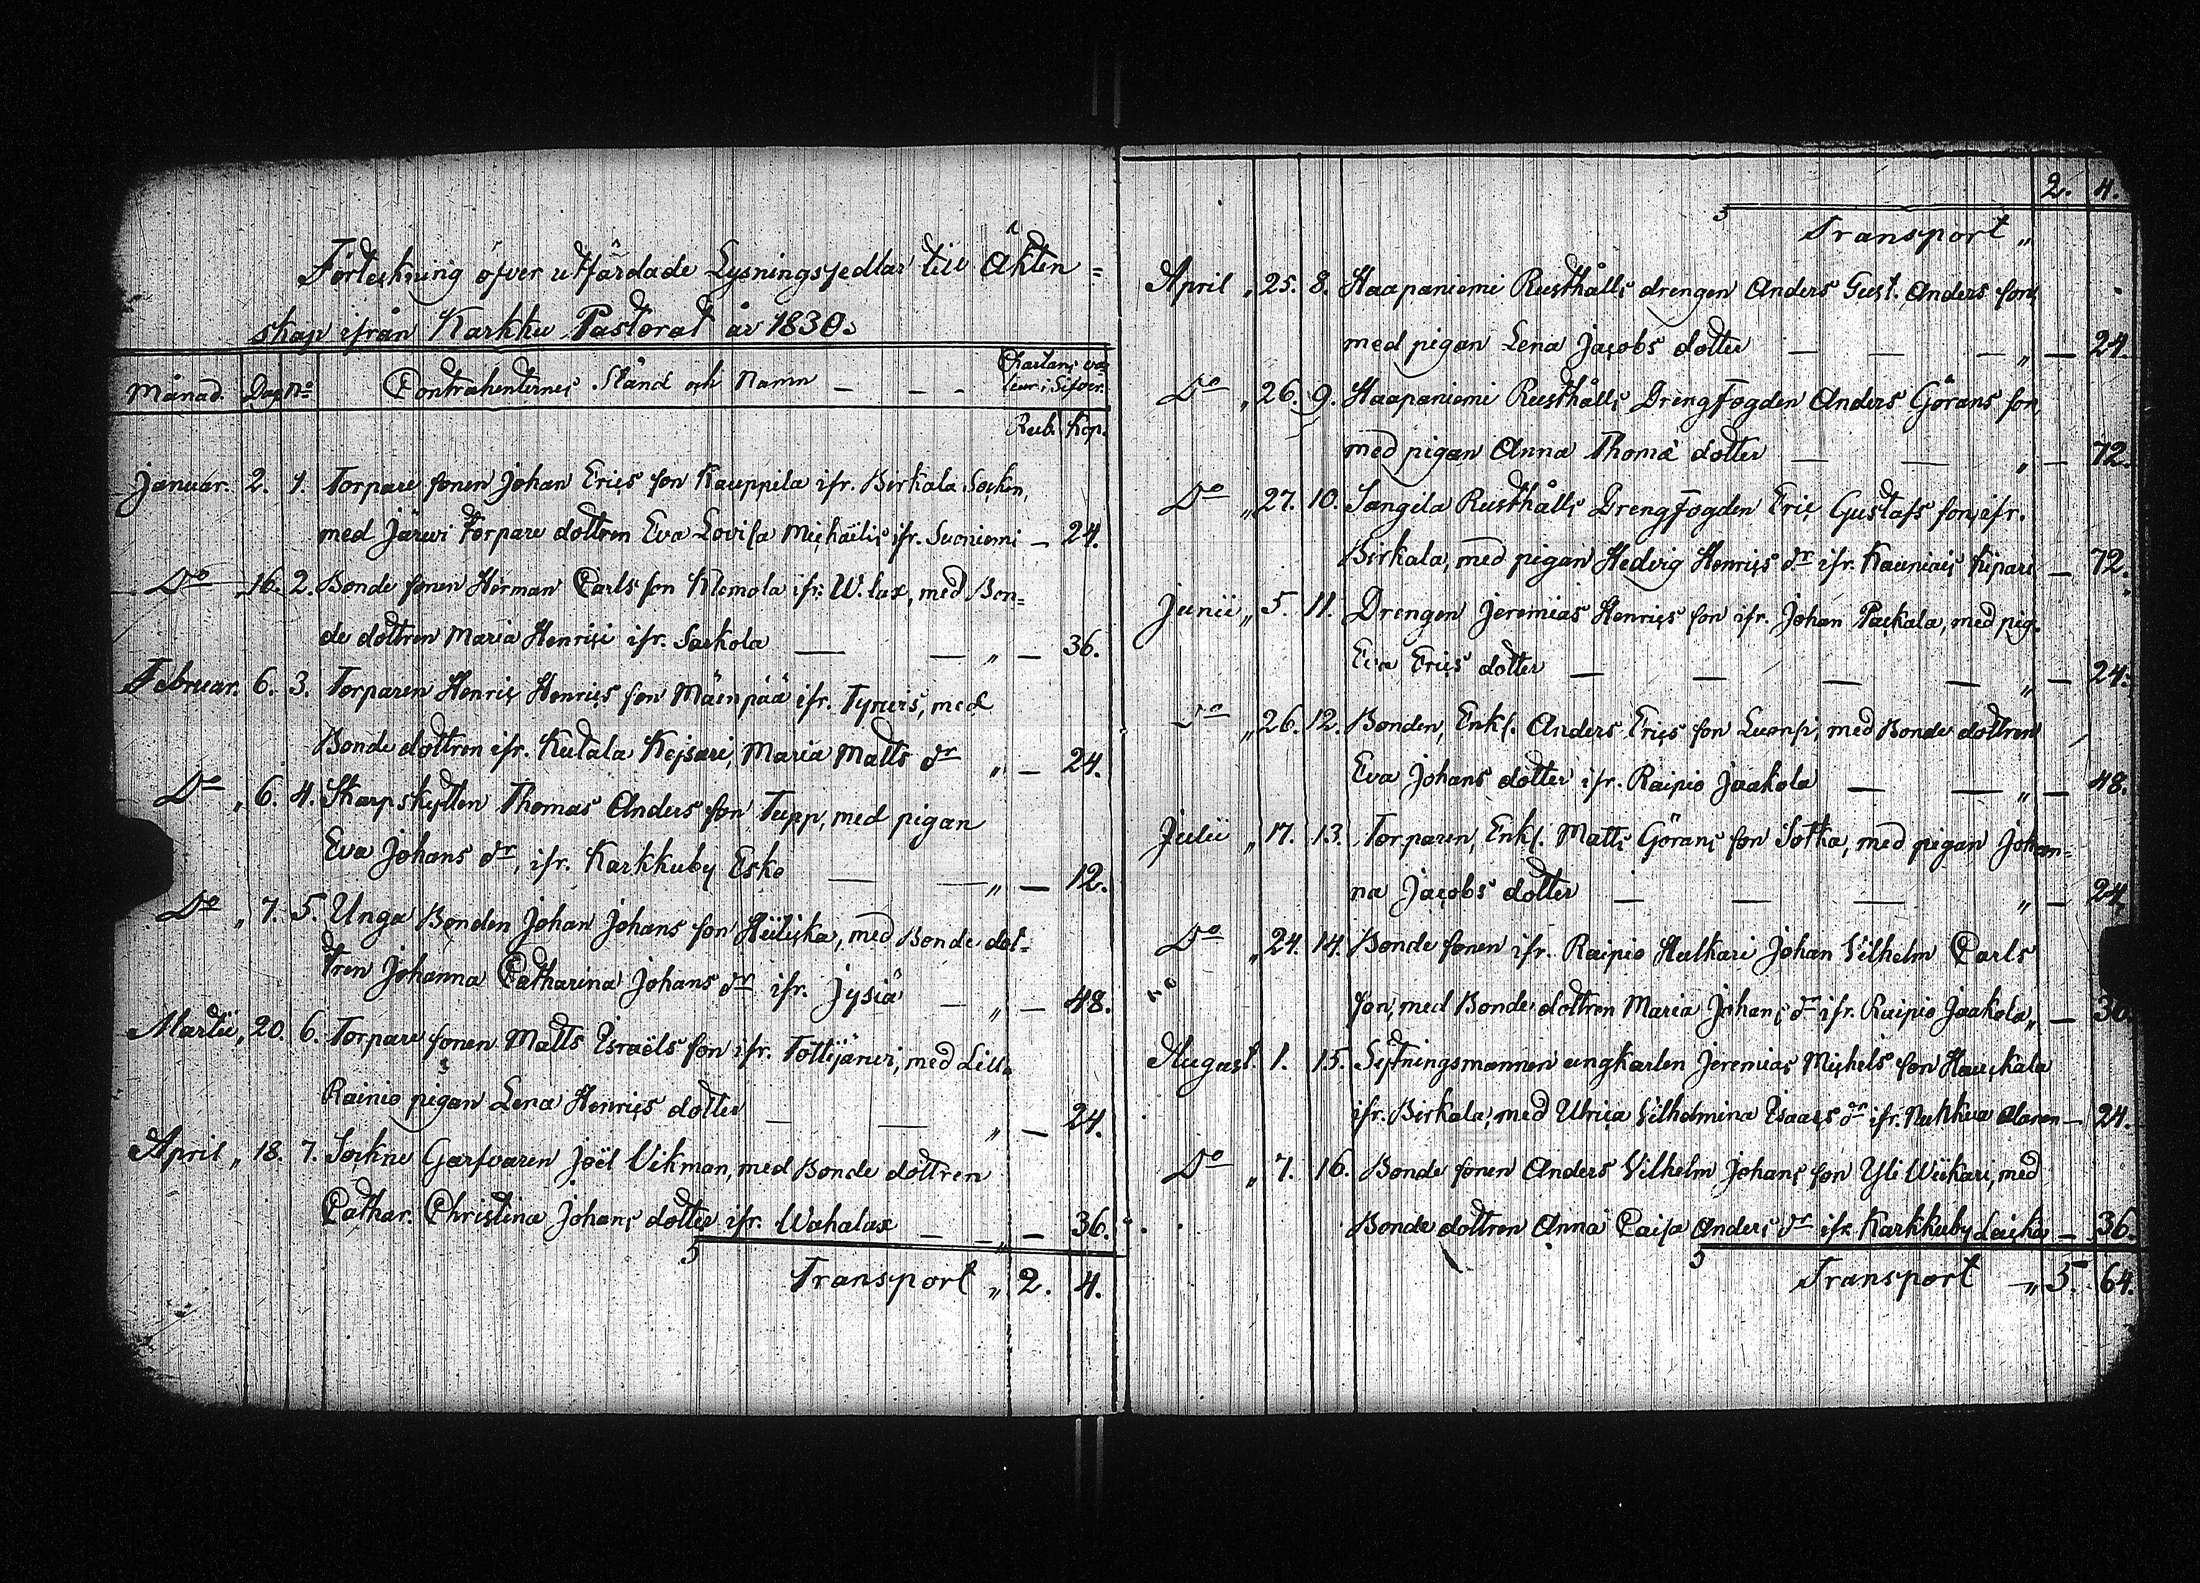 Förteckning öfver utfärdade Lysningssedlar till Äkten=
skap ifrån Karkku Pastorat år 1830.
Månad. Dag No Contrahenternes Stånd och Namn — — - Chartans va=
leur i Silfver.
Rub. Kop.
Januar. 2. 1. Torpare sonen Johan Erics son Kauppila ifr. Birkala Socken,
med Järwi Torpare dottren Eva Lovisa Michaëlis ifr. Suoniemi — 24.
Do 16. 2. Bonde sonen Herman Carls son Klemola ifr. W. lax, med Bon=
de dottren Maria Henrici ifr. Sarkola — — „ — 36.
Februar. 6. 3. Torparen Henric Henrics son Mäenpää ifr. Tyrvis, med
Bonde dottren ifr. Kutala Kejsari, Maria Matts dr „ — 24.
Do „ 6. 4. Skarpskytten Thomas Anders son Tupp, med pigan
Eva Johans dr, ifr. Karkkuby Esko — — „ — 12.
Do „ 7. 5. Unga Bonden Johan Johans son Heiliska, med Bonde dot=
tren Johanna Catharina Johans dr ifr. Jysiä — „ — 48.
Martii „ 20. 6. Torpare sonen Matts Israëls son ifr. Tottijärvi, med Lill=
Rainio pigan Lena Henrics dotter — — „ — 24.
April „ 18. 7. Sockne Garfvaren Joël Vikman, med Bonde dottren
Cathar. Christina Johans dotter ifr. Wahalax — — „ — 36.
Transport „ 2. 4.
2. 4.
Transport „
April „ 25. 8. Haapaniemi Rusthålls drengen Anders Gust. Anders son,
med pigan Lena Jacobs dotter — — — „ — 24.
Do „ 26. 9. Haapaniemi Rusthålls DrengFogden Anders Görans son,
med pigan Anna Thomæ dotter — — „ — 72.
Do „ 27. 10. Sangila Rusthålls DrengFogden Eric Gustafs son, ifr.
Birkala, med pigan Hedvig Henrics dr ifr. Kauniais Kipari — 72.
Junii „ 5. 11. Drengen Jeremias Henrics son ifr. Johan Packala, med pig.
Eva Erics dotter — — — — „ — 24.
Do „ 26. 12. Bonden, Enkl. Anders Erics son Luonsi, med Bonde dottren
Eva Johans dotter ifr. Raipio Jaakola — — „ — 48.
Julii „ 17. 13. Torparen, Enkl. Matts Görans son Sotka, med pigan Johan=
na Jacobs dotter — — — „ — 24.
Do „ 24. 14. Bonde sonen ifr. Raipio Hulkari Johan Vilhelm Carls
son, med Bonde dottren Maria Johans dr ifr. Raipio Jaakola „ — 36.
August. 1. 15. Sytningsmannen ungkarlen Jeremias Michels son Hauckala
ifr. Birkala, med Ulrica Vilhelmina Isaacs dr ifr. — 24.
Do „ 7. 16. Bonde sonen Anders Vilhelm Johans son Yli Wiikari, med
Bonde dottren Anna Caisa Anders dr ifr. Karkkuby Laicka — 36.
Transport — „ 5. 64.